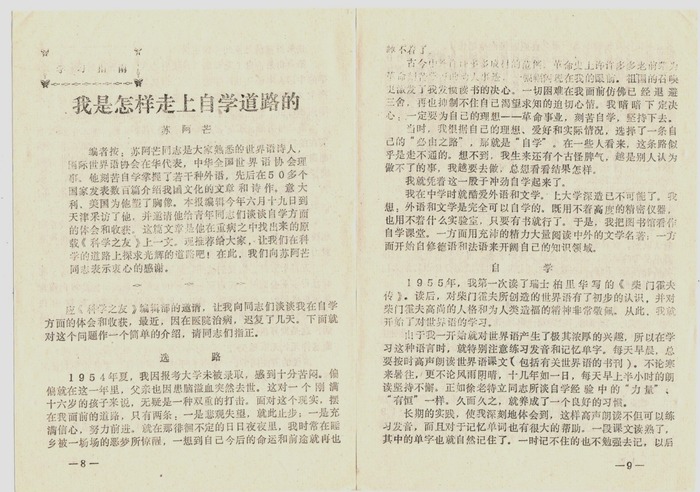 学习指南
我是怎样走上自学道路的
苏阿芒
编者按：苏阿芒同志是大家熟悉的世界语诗人，
国际世界语协会在华代表，中华全国世界语协会理
事。他刻苦自学掌握了若干种外语，先后在50多个
国家发表数百篇介绍我国文化的文章和诗作。意大
利、美国为他塑了胸像。本报编辑今年六月十九日到
天津采访了他、并邀请他给青年同志们谈谈自学方面
的体会和收获。这篇文章是他在重病之中找出来的原
载《科学之友》上一文，现推荐给大家，让我们在科
学的道路上探求光辉的道路吧！在此，我们向苏阿芒
同志表示衷心的感谢。
应《科学之友》编辑部的邀请，让我向同志们谈谈我在自学
方面的体会和收获，最近，因在医院治病，迟复了几天。下面就
对这个问题作一个简单的介绍，请同志们指正。
选 路
1954年夏，我因报考大学未被录取，感到十分苦闷。偏
偏就在这一年里，父亲也因患脑溢血突然去世。这对一个刚满
十六岁的孩子来说，无疑是一种双重的打击。面对这个现实，摆
在我面前的道路，只有两条：一是悲观失望，就此止步；一是充
满信心，努力前进。就在那徘徊不定的日日夜夜里，我时常在睡
乡被一场场的恶梦所惊醒，一想到自己今后的命运和前途就再也
—8—
睡不着了。
古今中外
我的眼前。祖国的召唤
更激发了我发愤读书的决心。一切困难在我面前仿佛已经退避
三舍，再也抑制不住自己渴望求知的迫切心情。我暗暗下定决
心：一定要为自己的理想——革命事业，刻苦自学，坚持下去。
当时，我根据自己的理想、爱好和实际情况，选择了一条自
己的“必由之路”，那就是“自学”。在一些人看来，这条路似
乎是走不通的。想不到，我生来还有个古怪脾气，越是别人认为
做不了的事，我越要去做，总想看看结果怎样。
我就凭着这一股子冲劲自学起来了。
我在中学时就酷爱外语和文学。上大学深造已不可能了。我
想，外语和文学是完全可以自学的。既用不着高度的精密仪器，
也用不着什么实验室，只要有书就行了。于是，我把图书馆看作
自学课堂。一方面用充沛的精力大量阅读中外的文学名著；一方
面开始自修德语和法语来开阔自己的知识领域。
自 学
1955年，我第一次读了瑞士柏里华写的《柴门霍夫
传》。读后，对柴门霍夫所创造的世界语有了初步的认识，并对
柴门霍夫高尚的人格和为人类造福的精神非常敬佩。从此，我就
开始了对世界语的学习。
由于我一开始就对世界语产生了极其浓厚的兴趣，所以在学
习这种语言时，就特别注意练习发音和记忆单字。每天早晨，总
要按时高声朗读世界语课文（包括有关世界语的书刊）。不论寒
来暑往，更不论风雨阴晴，十几年如一日，每天早上半小时的朗
读坚持不懈。正如徐老特立同志所谈自学经验中的“力量”、
“有恒”一样。久而久之，就养成了一个良好的习惯。
长期的实践，使我深刻地体会到，这样高声朗读不但可以练
习发音，而且对于记忆单词也有很大的帮助。一段课文读熟了，
其中的单字也就自然记住了。一时记不住的也不勉强去记，以后
—9—